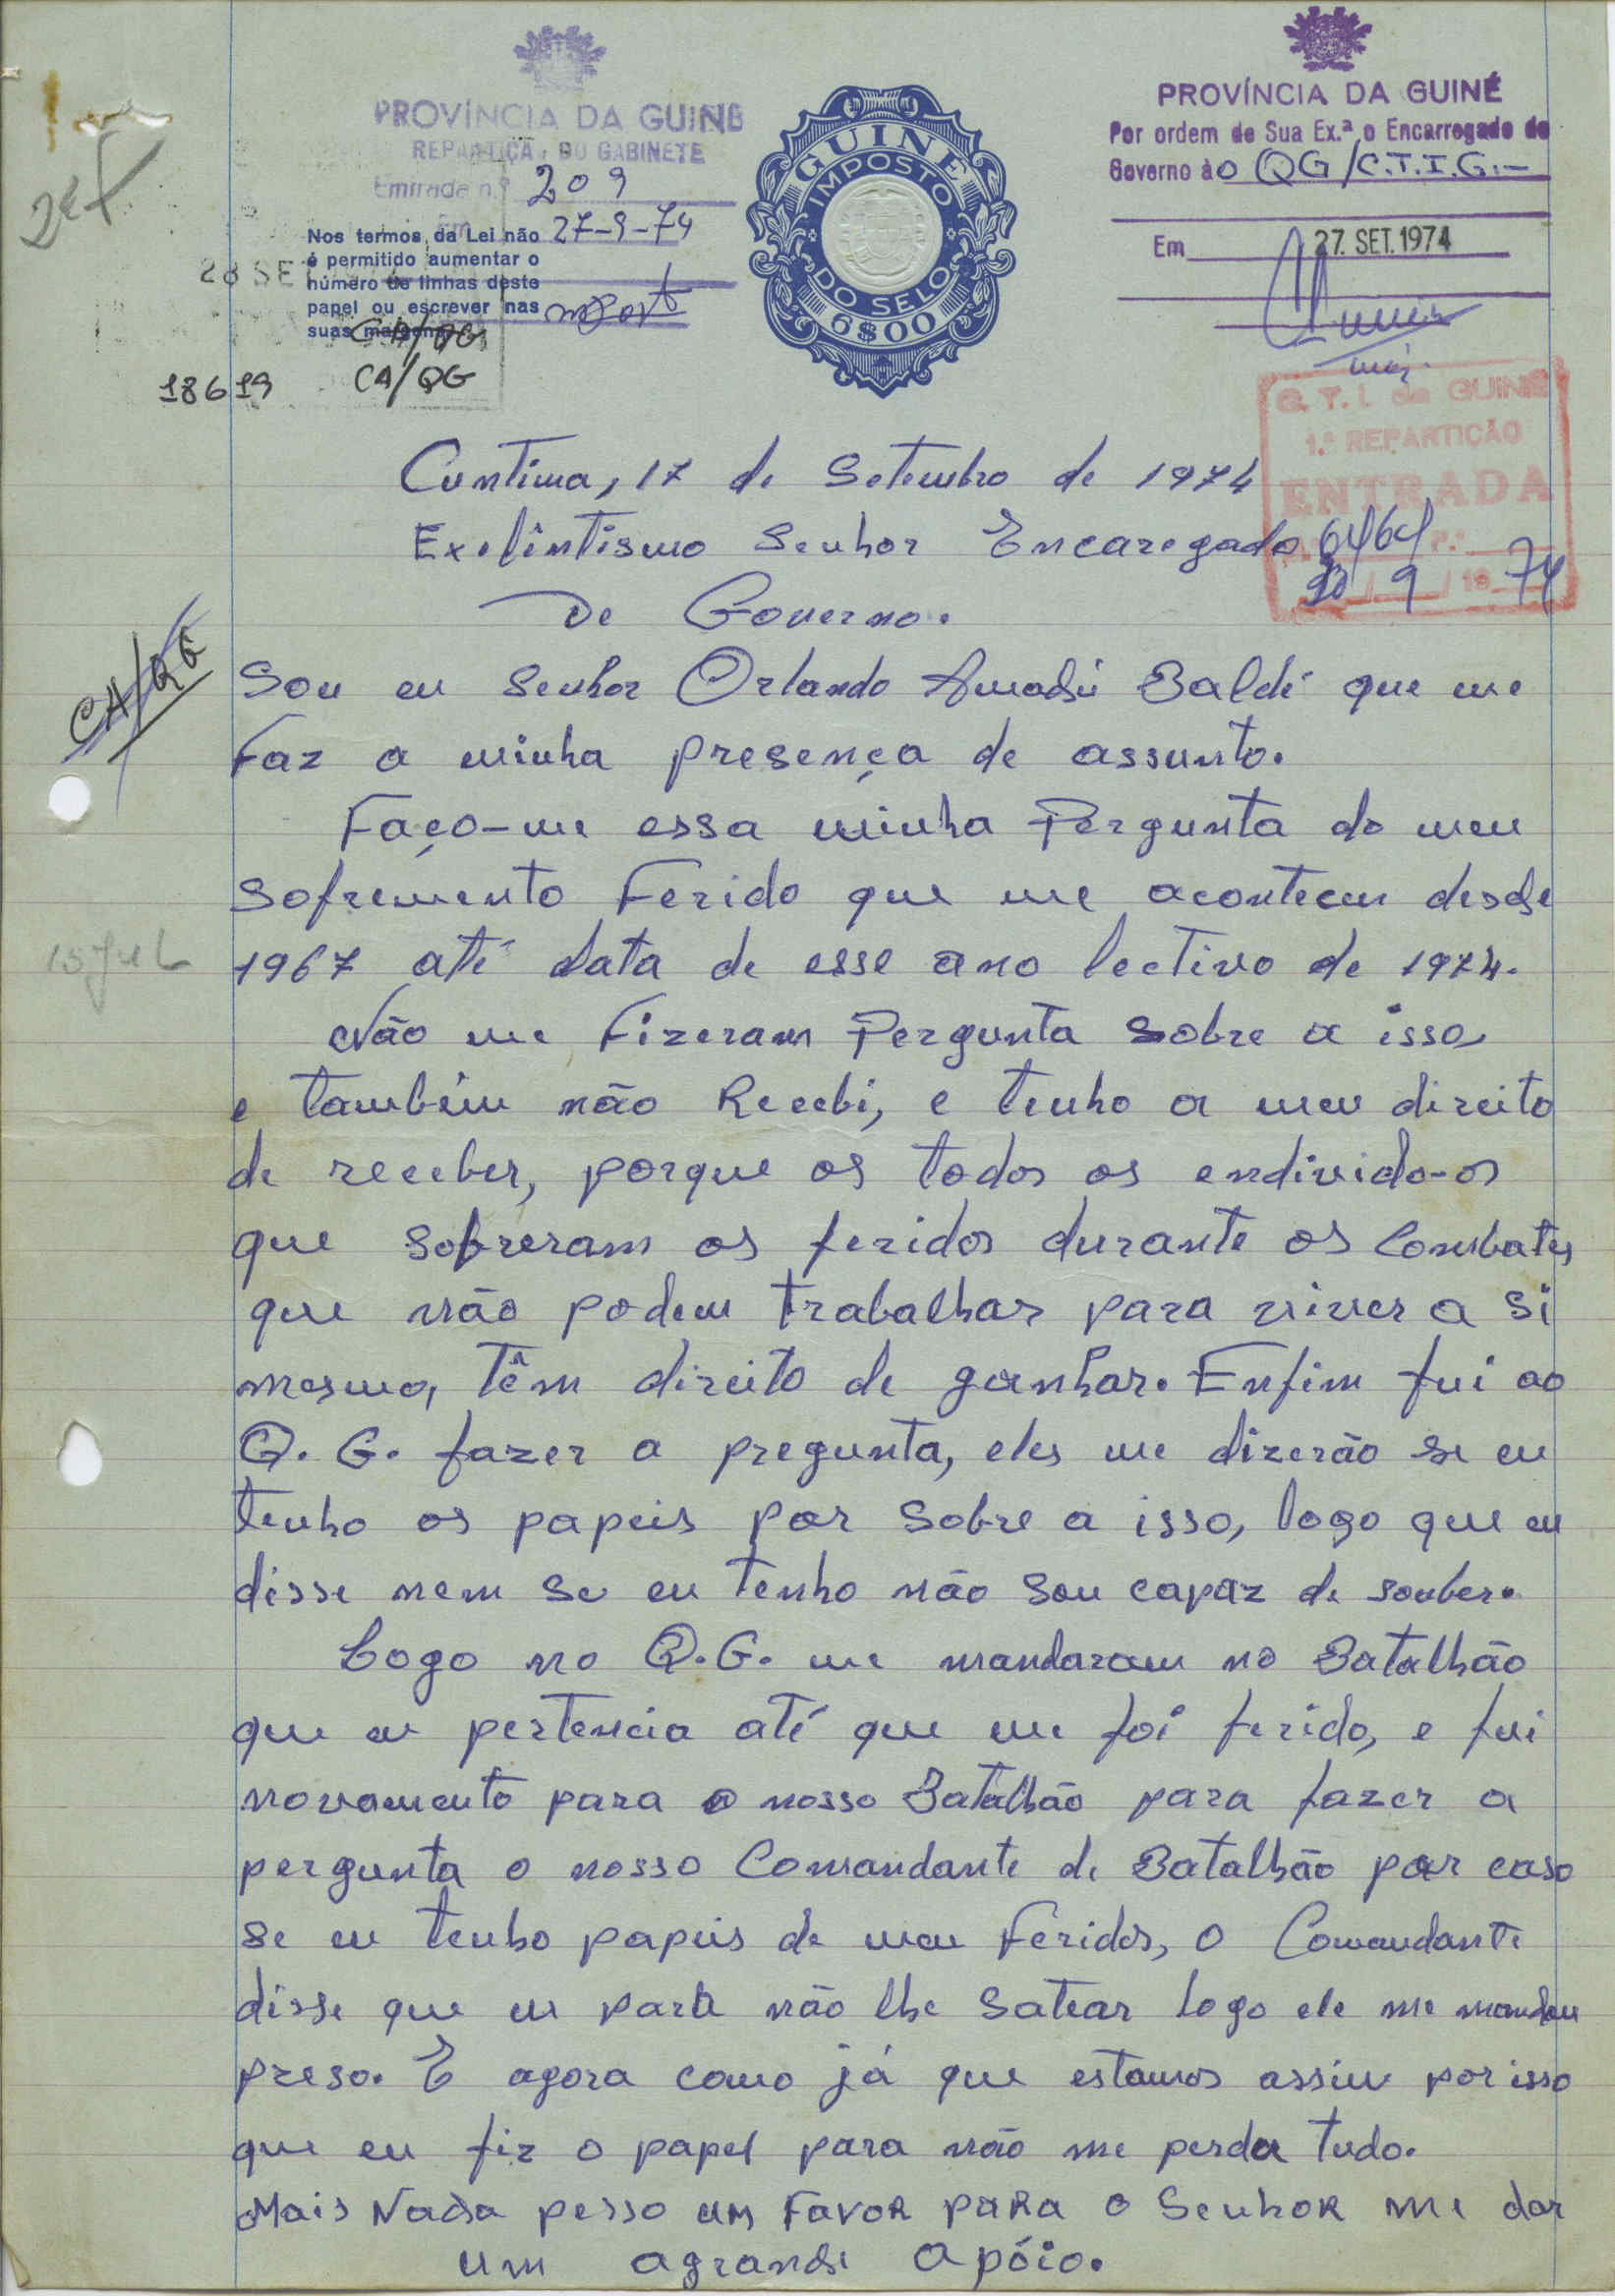 PROVÍNCIA DA GUINÉ
REPARTIÇÃO DO GABINETE
Entrada n.º 209
Em 27-9-74
Nos termos da Lei não
é permitido aumentar o
número de linhas deste
papel ou escrever nas
suas margens
28 SET
CA/QG
CA/QG
18619
GUINÉ
IMPOSTO
DO SELO
6$00
PROVÍNCIA DA GUINÉ
Por ordem de Sua Ex.ª o Encarregado do
Governo à o QG/C.T.I.G.-
Em 27. SET. 1974
C. T. I. da GUINÉ
1.ª REPARTIÇÃO
ENTRADA
9 / 19 74
CA/QG
Cuntima, 17 de Setembro de 1974
Exelintismo Senhor Encaregado
De Governo.
Sou eu Senhor Orlando Amadú Baldé que me
Faz a minha presença de assunto.
Faço-me essa minha Pergunta do meu
Sofremento Ferido que me aconteceu desde
1967 até data de esse ano lectivo de 1974.
Não me Fizeram Pergunta Sobre a isso,
e também não Recebi, e tenho a meu direito
de receber, porque os todos os endivido-os
que sofreram os feridos durante os Combates,
que não podem trabalhar para viver a si
mesmo, têm direito de ganhar. Enfim fui ao
Q. G. fazer a pregunta, eles me dizerão se eu
tenho os papeis por sobre a isso, logo que eu
disse nem se eu tenho não sou capaz de souber.
Logo no Q.G. me mandaram no Batalhão
que eu pertencia até que me foi ferido, e fui
novamento para o nosso Batalhão para fazer a
pergunta o nosso Comandante de Batalhão por caso
se eu tenho papeis de meu Feridos, o Comandante
disse que eu para não lhe satear logo ele me mandou
preso. E agora como já que estamos assim por isso
que eu fiz o papel para não me perder tudo.
Mais Nada pesso um Favor para o Senhor me dar
um agrande apóio.